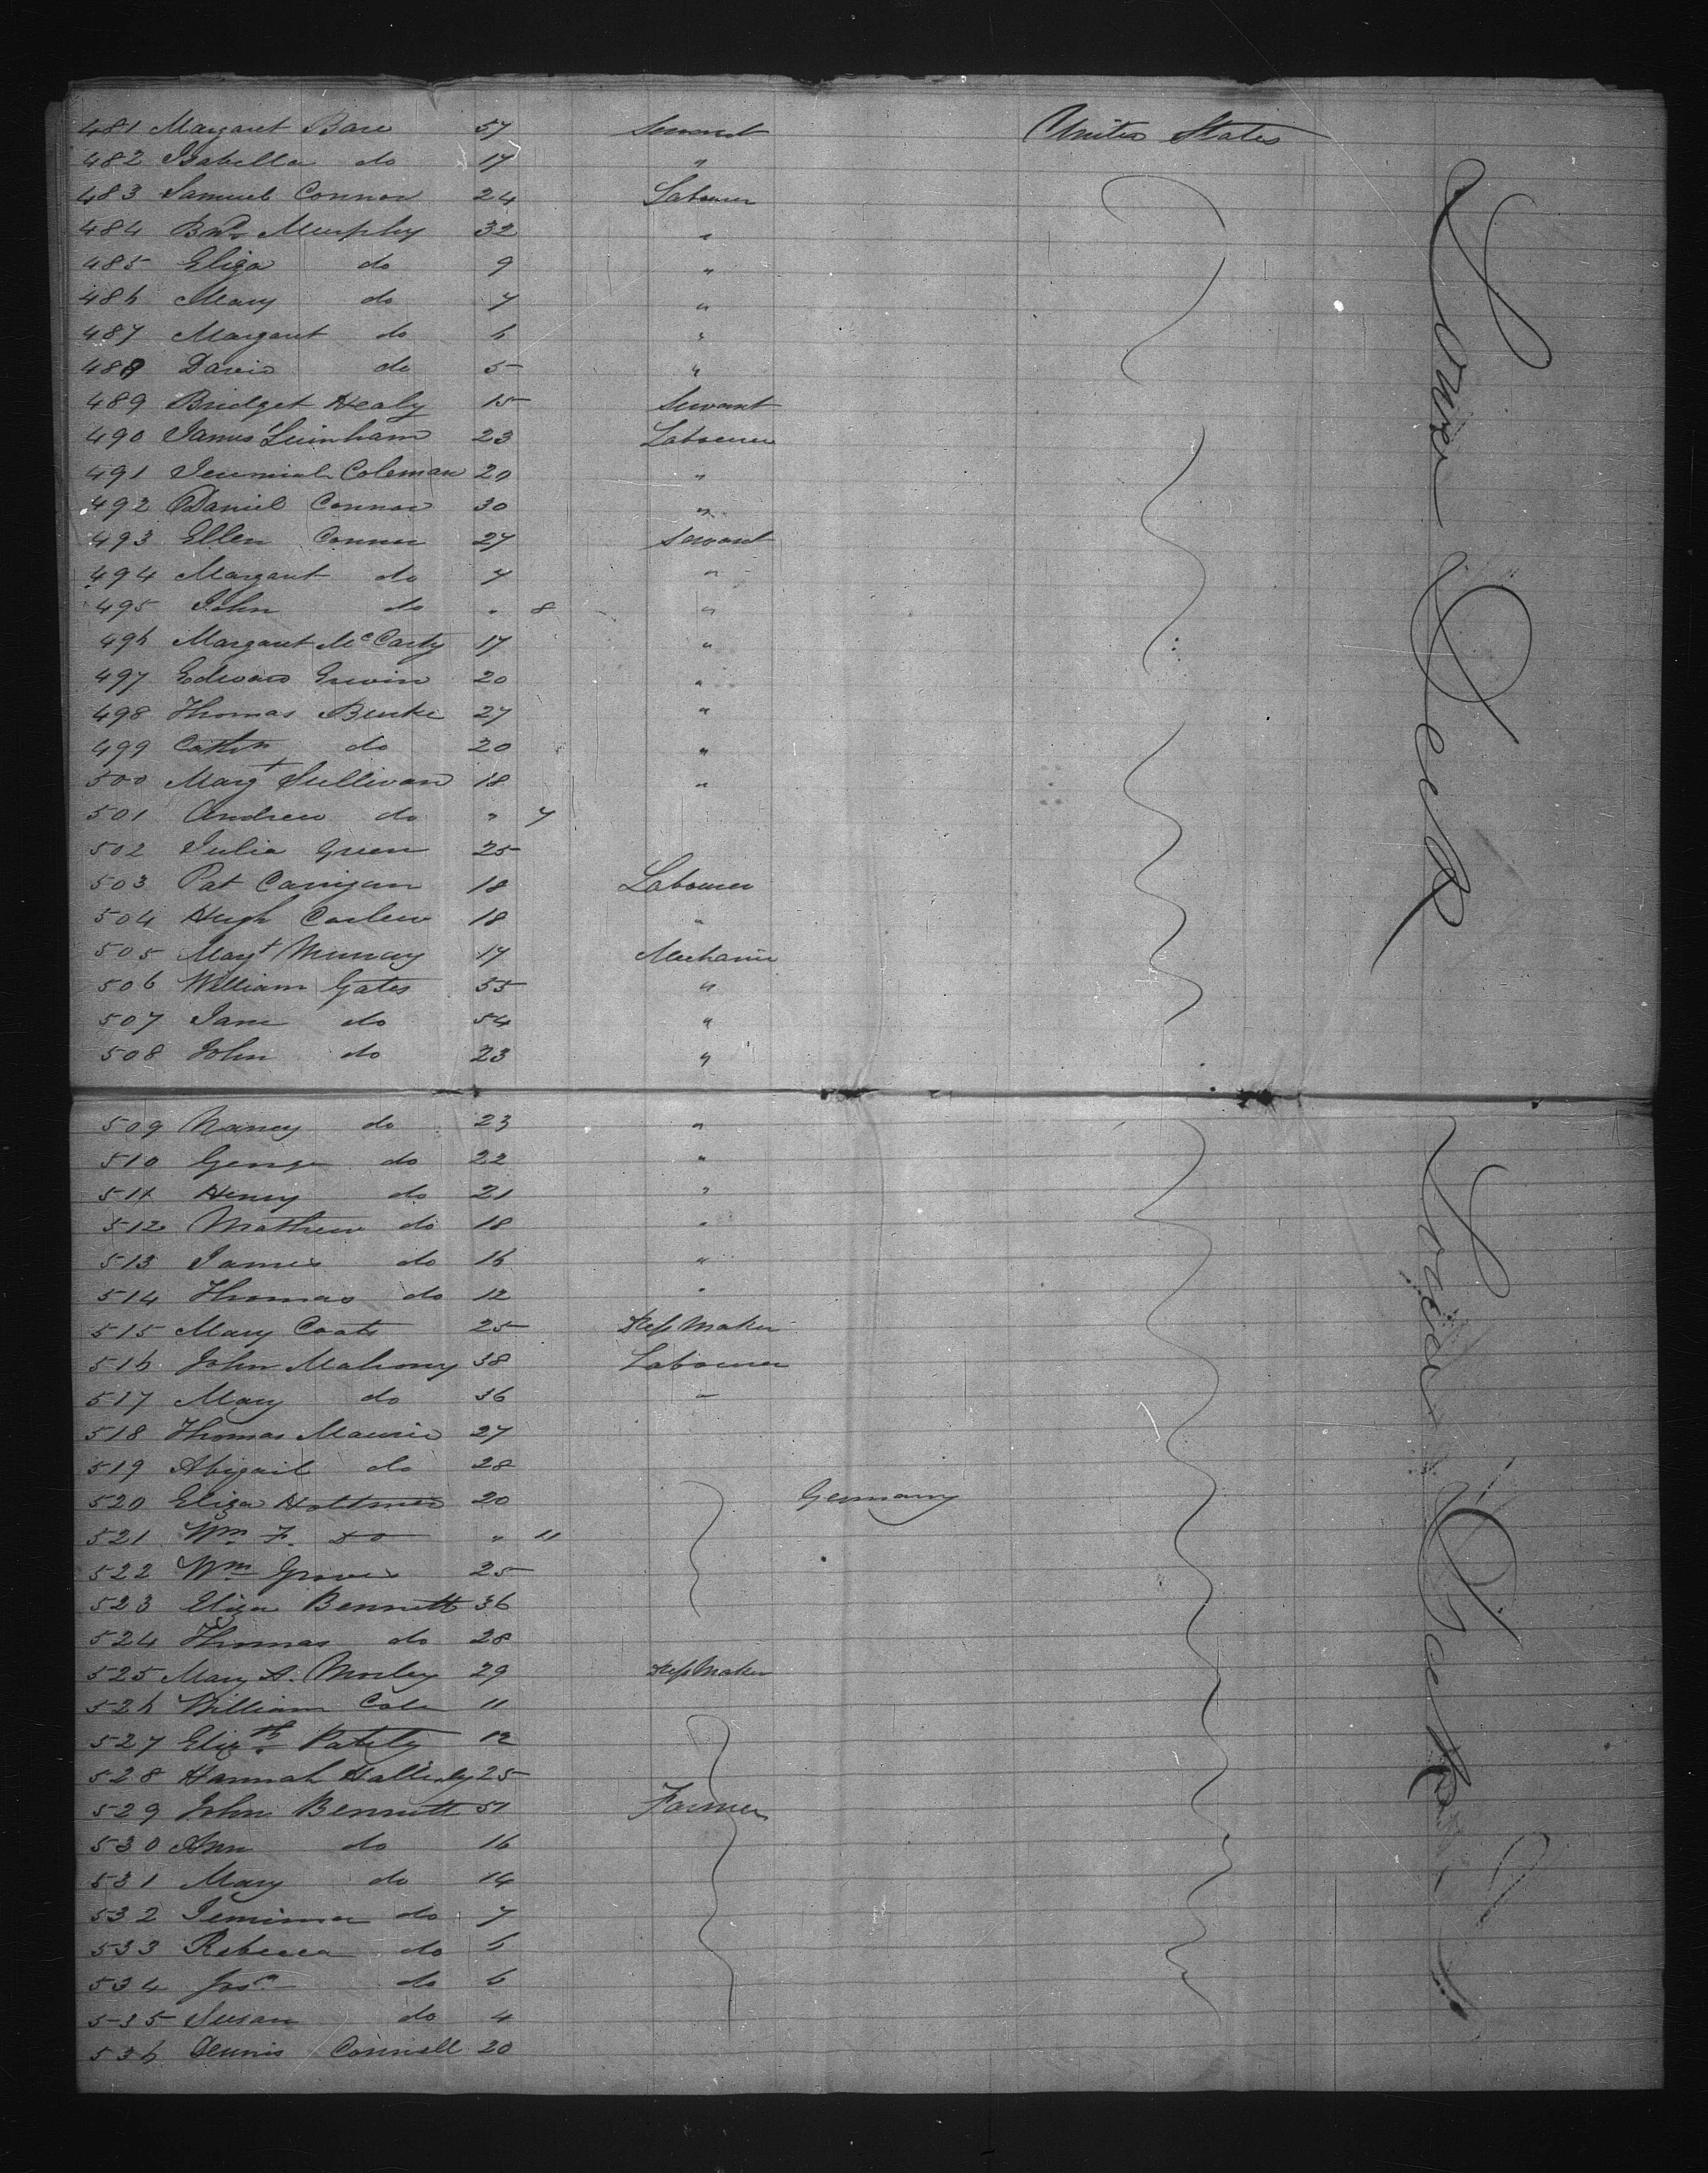 481 Margaret Bare 57 Servant United States
482 Isabella do 17 "
483 Samuel Connor 24 Labourer
484 Murphy 32 "
485 Eliza do 9 "
486 Mary do 7 "
487 Margaret do 6 "
488 David do 5 "
489 Bridget Healy 15 Servant
490 James 23 Labourer
491 Jeremiah Coleman 20 "
492 Daniel Connor 30 "
493 Ellen Connor 27 Servant
494 Margaret do 7 "
495 John do " 8 "
496 Margaret McCarty 17 "
497 Edward 20 "
498 Thomas Burke 27 "
499 do 20 "
500 Margt Sullivan 18 "
501 Andrew do " 7
502 Julia Green 25
503 Pat Carrigan 18 Labourer
504 Hugh 18 "
505 Margt Murray 17 Mechanic
506 William Gates 55 "
507 Jane do 54 "
508 John do 23 "
509 Nancy do 23 "
510 George do 22 "
511 Henry do 21 "
512 Mathew do 18 "
513 James do 16 "
514 Thomas do 12 "
515 Mary Coats 25 Maker
516 John Mahony 38 Labourer
517 Mary do 36 "
518 Thomas Maurice 27
519 Abigail do 28
520 Eliza 20 Germany
521 Wm F. do " 11
522 Wm Groves 25
523 Eliza Bennett 36
524 Thomas do 28
525 Mary A. Morley 29 Maker
526 William Cole 11
527 Elizth 12
528 Hannah 25
529 John Bennett 51 Farmer
530 Ann do 16
531 Mary do 14
532 Jemima do 7
533 Rebecca do 6
534 do 6
535 Susan do 4
536 Dennis Connell 20
Lower Deck
Lower Deck